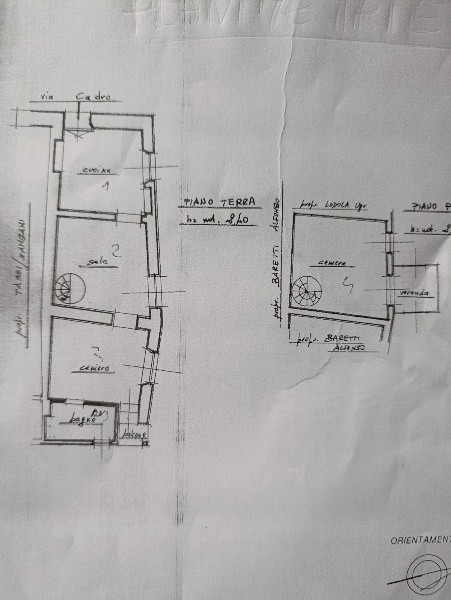 PLANIMETRIE
via Cadro
cucina
1
PIANO TERRA
h= mt. 2,40
sala
2
3
camera
bagno
propr. BARETTI ALFONSO
propr. LODOLA Ugo
PIANO P
h= mt. 2
camera
4
veranda
propr. BARETTI
ALFONSO
ORIENTAMENT